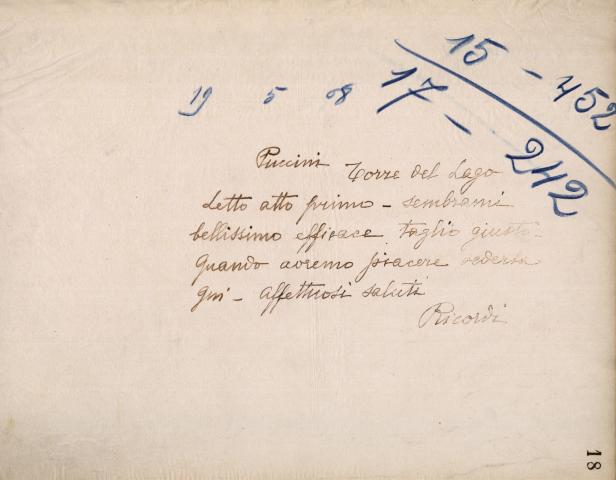 15 - 452
19 5 08 17 - 242
Puccini Torre del Lago
Letto atto primo - sembrami
bellissimo efficace taglio giusto -
quando avremo piacere vederla
qui - affettuosi saluti
Ricordi
18